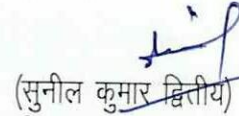 (सुनील कुमार द्वितीय)